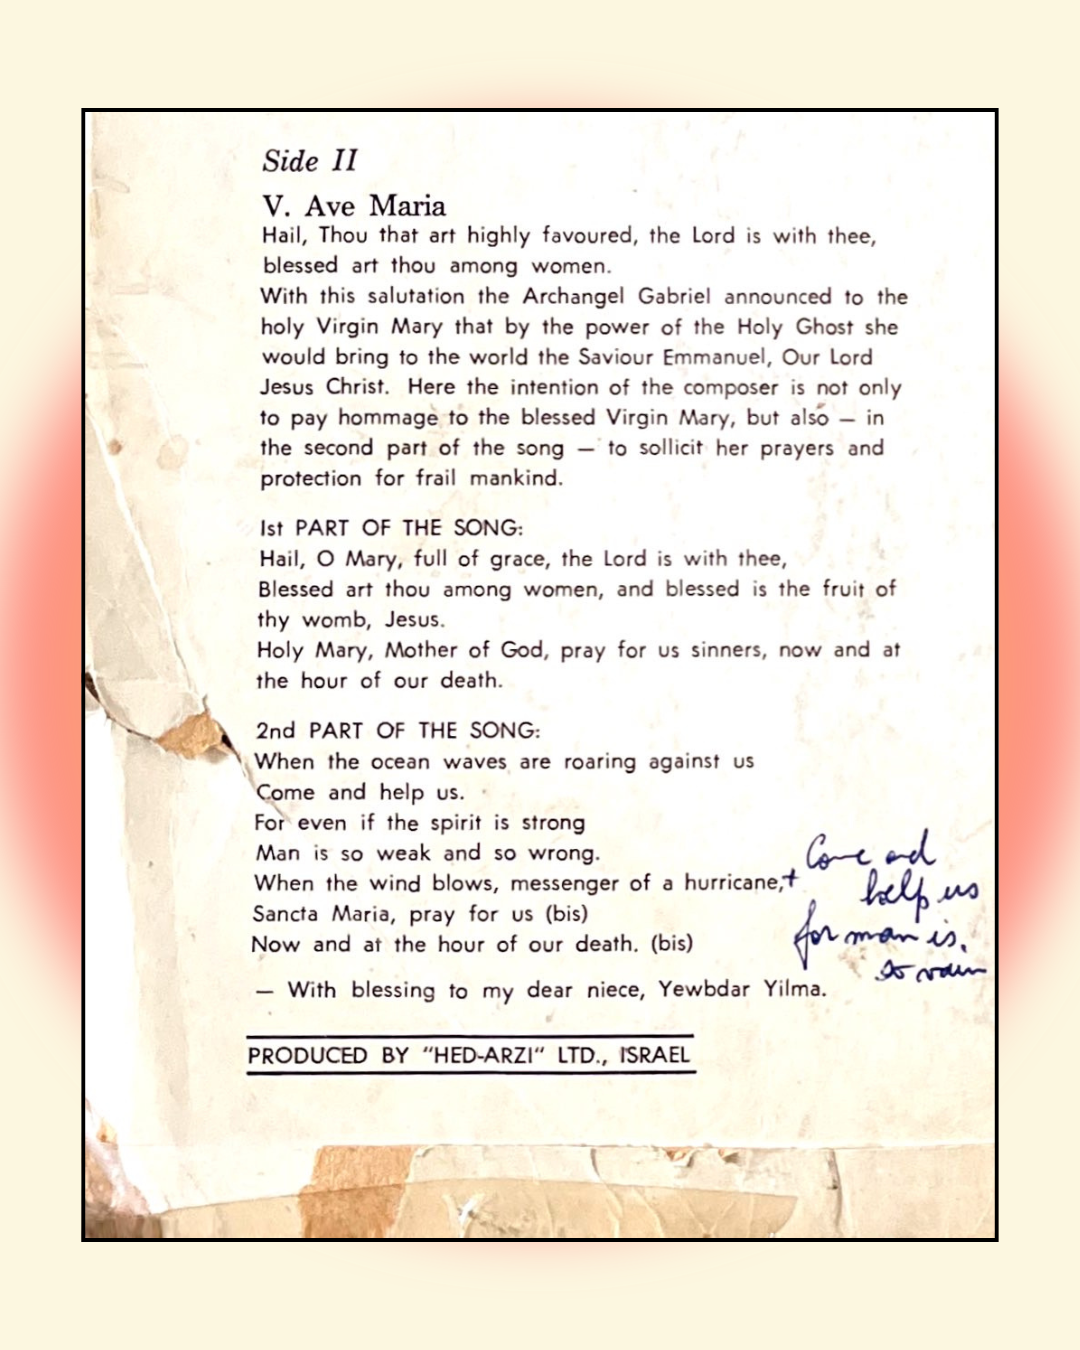 Side II
V. Ave Maria
Hail, Thou that art highly favoured, the Lord is with thee,
blessed art thou among women.
With this salutation the Archangel Gabriel announced to the
holy Virgin Mary that by the power of the Holy Ghost she
would bring to the world the Saviour Emmanuel, Our Lord
Jesus Christ. Here the intention of the composer is not only
to pay hommage to the blessed Virgin Mary, but also — in
the second part of the song — to sollicit her prayers and
protection for frail mankind.
1st PART OF THE SONG:
Hail, O Mary, full of grace, the Lord is with thee,
Blessed art thou among women, and blessed is the fruit of
thy womb, Jesus.
Holy Mary, Mother of God, pray for us sinners, now and at
the hour of our death.
2nd PART OF THE SONG:
When the ocean waves are roaring against us
Come and help us.
For even if the spirit is strong
Man is so weak and so wrong.
When the wind blows, messenger of a hurricane,+
Come and
help us
for man is.
so vain
Sancta Maria, pray for us (bis)
Now and at the hour of our death. (bis)
— With blessing to my dear niece, Yewbdar Yilma.
PRODUCED BY "HED-ARZI" LTD., ISRAEL